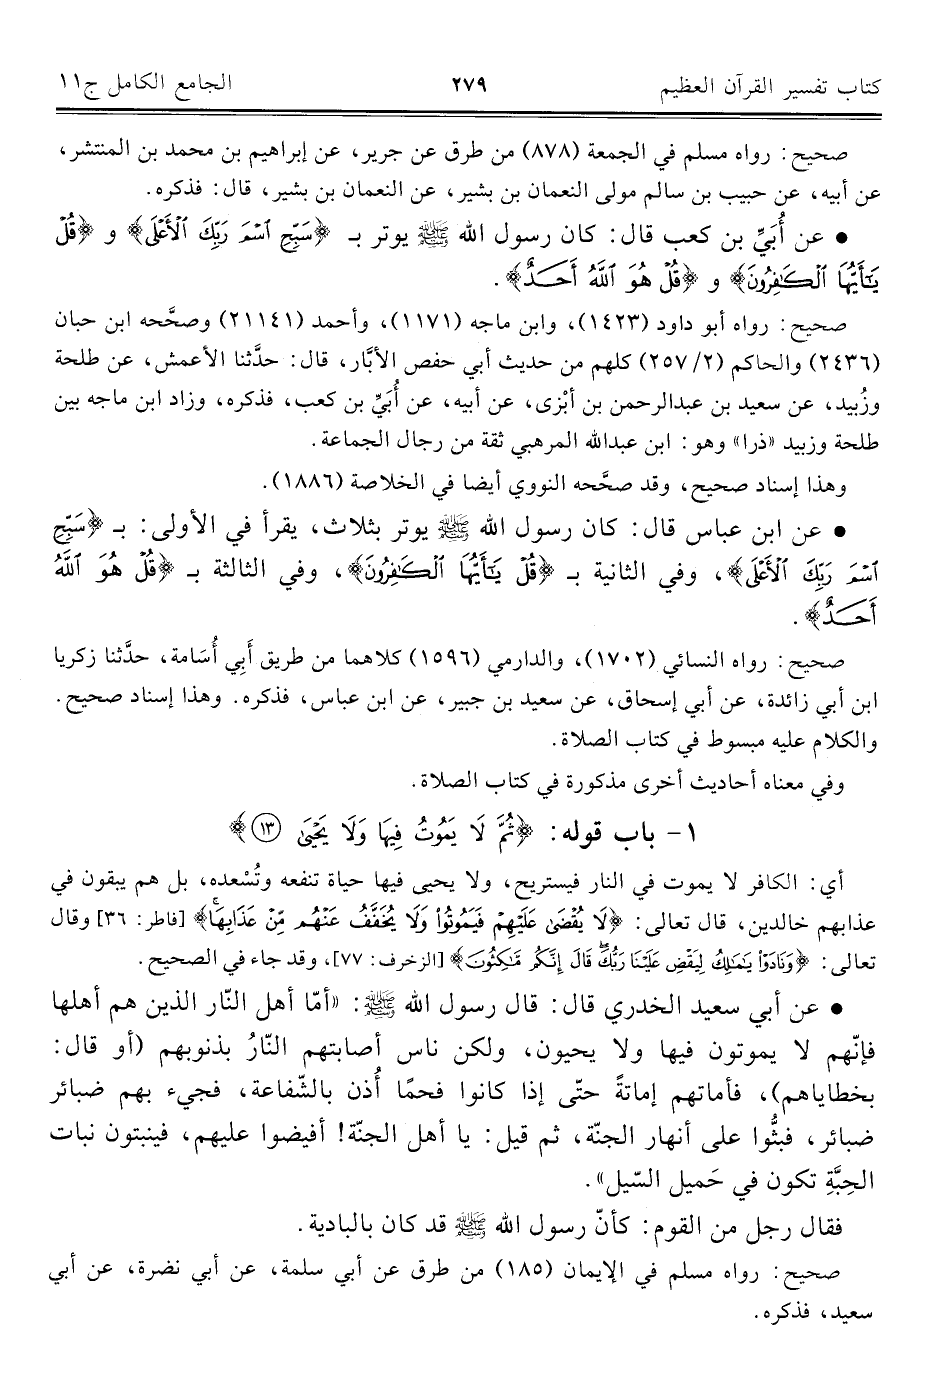 كتاب تفسير القرآن العظيم ٢٧٩ الجامع الكامل ج١١
صحيح: رواه مسلم في الجمعة (٨٧٨) من طرق عن جرير، عن إبراهيم بن محمد بن المنتشر،
عن أبيه، عن حبيب بن سالم مولى النعمان بن بشير، عن النعمان بن بشير، قال: فذكره.
• عن أُبَيِّ بن كعب قال: كان رسول الله ﷺ يوتر بـ ﴿سَبِّحِ ٱسْمَ رَبِّكَ ٱلْأَعْلَى﴾ و ﴿قُلْ
يَٰٓأَيُّهَا ٱلْكَٰفِرُونَ﴾ و ﴿قُلْ هُوَ ٱللَّهُ أَحَدٌ﴾.
صحيح: رواه أبو داود (١٤٢٣)، وابن ماجه (١١٧١)، وأحمد (٢١١٤١) وصحَّحه ابن حبان
(٢٤٣٦) والحاكم (٢/ ٢٥٧) كلهم من حديث أبي حفص الأبَّار، قال: حدَّثنا الأعمش، عن طلحة
وزُبيد، عن سعيد بن عبدالرحمن بن أبْزى، عن أبيه، عن أُبَيِّ بن كعب، فذكره، وزاد ابن ماجه بين
طلحة وزبيد «ذرا» وهو: ابن عبدالله المرهبي ثقة من رجال الجماعة.
وهذا إسناد صحيح، وقد صحَّحه النووي أيضا في الخلاصة (١٨٨٦).
• عن ابن عباس قال: كان رسول الله ﷺ يوتر بثلاث، يقرأ في الأولى: بـ ﴿سَبِّحِ
ٱسْمَ رَبِّكَ ٱلْأَعْلَى﴾، وفي الثانية بـ ﴿قُلْ يَٰٓأَيُّهَا ٱلْكَٰفِرُونَ﴾، وفي الثالثة بـ ﴿قُلْ هُوَ ٱللَّهُ
أَحَدٌ﴾.
صحيح: رواه النسائي (١٧٠٢)، والدارمي (١٥٩٦) كلاهما من طريق أَبِي أُسَامة، حدَّثنا زكريا
ابن أبي زائدة، عن أبي إسحاق، عن سعيد بن جبير، عن ابن عباس، فذكره. وهذا إسناد صحيح.
والكلام عليه مبسوط في كتاب الصلاة.
وفي معناه أحاديث أخرى مذكورة في كتاب الصلاة.
١- باب قوله: ﴿ثُمَّ لَا يَمُوتُ فِيهَا وَلَا يَحْيَىٰ ١٣﴾
أي: الكافر لا يموت في النار فيستريح، ولا يحيى فيها حياة تنفعه وتُسْعده، بل هم يبقون في
عذابهم خالدين، قال تعالى: ﴿لَا يُقْضَىٰ عَلَيْهِمْ فَيَمُوتُوا۟ وَلَا يُخَفَّفُ عَنْهُم مِّنْ عَذَابِهَا﴾ [فاطر: ٣٦] وقال
تعالى: ﴿وَنَادَوْا۟ يَٰمَٰلِكُ لِيَقْضِ عَلَيْنَا رَبُّكَ ۖ قَالَ إِنَّكُم مَّٰكِثُونَ﴾ [الزخرف: ٧٧]، وقد جاء في الصحيح.
• عن أبي سعيد الخدري قال: قال رسول الله ﷺ: «أمّا أهل النّار الذين هم أهلها
فإنّهم لا يموتون فيها ولا يحيون، ولكن ناس أصابتهم النّارُ بذنوبهم (أو قال:
بخطاياهم)، فأماتهم إماتةً حتّى إذا كانوا فحمًا أُذن بالشّفاعة، فجيء بهم ضبائر
ضبائر، فبثُّوا على أنهار الجنّة، ثم قيل: يا أهل الجنّة! أفيضوا عليهم، فينبتون نبات
الحِبَّةِ تكون في حَميل السّيل».
فقال رجل من القوم: كأنّ رسول الله ﷺ قد كان بالبادية.
صحيح: رواه مسلم في الإيمان (١٨٥) من طرق عن أبي سلمة، عن أبي نضرة، عن أبي
سعيد، فذكره.